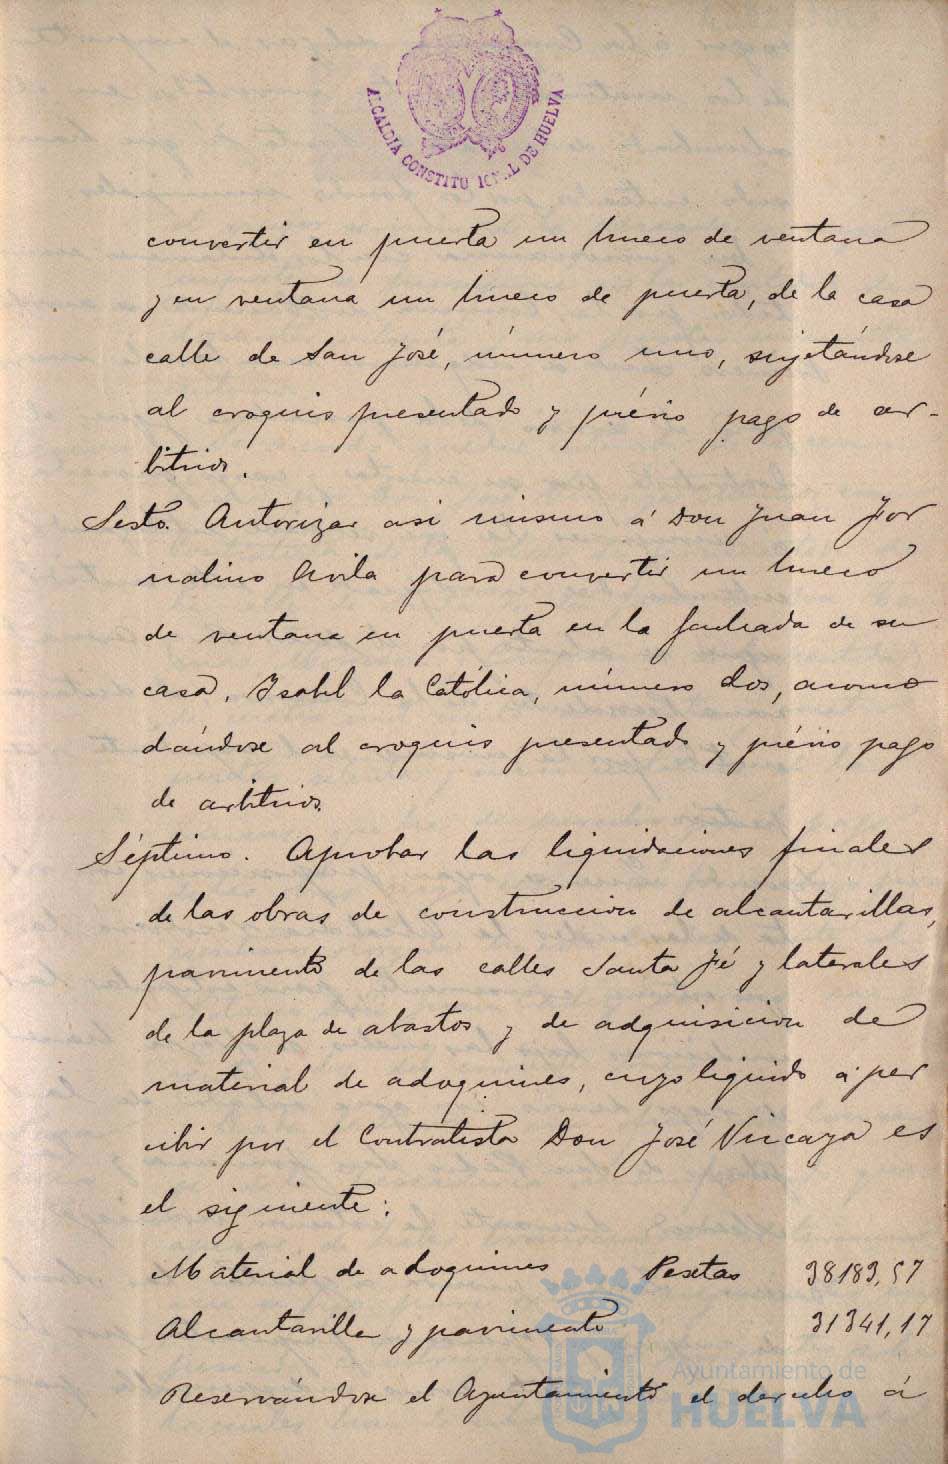 ALCALDIA CONSTITUCIONAL DE HUELVA
convertir en puerta un hueco de ventana
y en ventana un hueco de puerta, de la casa
calle de San José, número uno, sujetándose
al croquis presentado y prévio pago de ar-
bitrios.
Sesto. Autorizar asi mismo á Don Juan Jor
nalino Avila para convertir un hueco
de ventana en puerta en la fachada de su
casa, Isabel la Católica, número dos, acomo
dándose al croquis presentado y prévio pago
de arbitrios.
Séptimo. Aprobar las liquidaciones finales
de las obras de construccion de alcantarillas,
pavimento de las calles Santa Fé y laterales
de la plaza de abastos y de adquisicion de
material de adoquines, cuyo liquido á per
cibir por el Contratista Don José Vizcaya es
el siguiente:
Material de adoquines Pesetas 38183,57
Alcantarilla y pavimento 31341,17
Reservándose el Ayuntamiento el derecho á
Ayuntamiento de
HUELVA